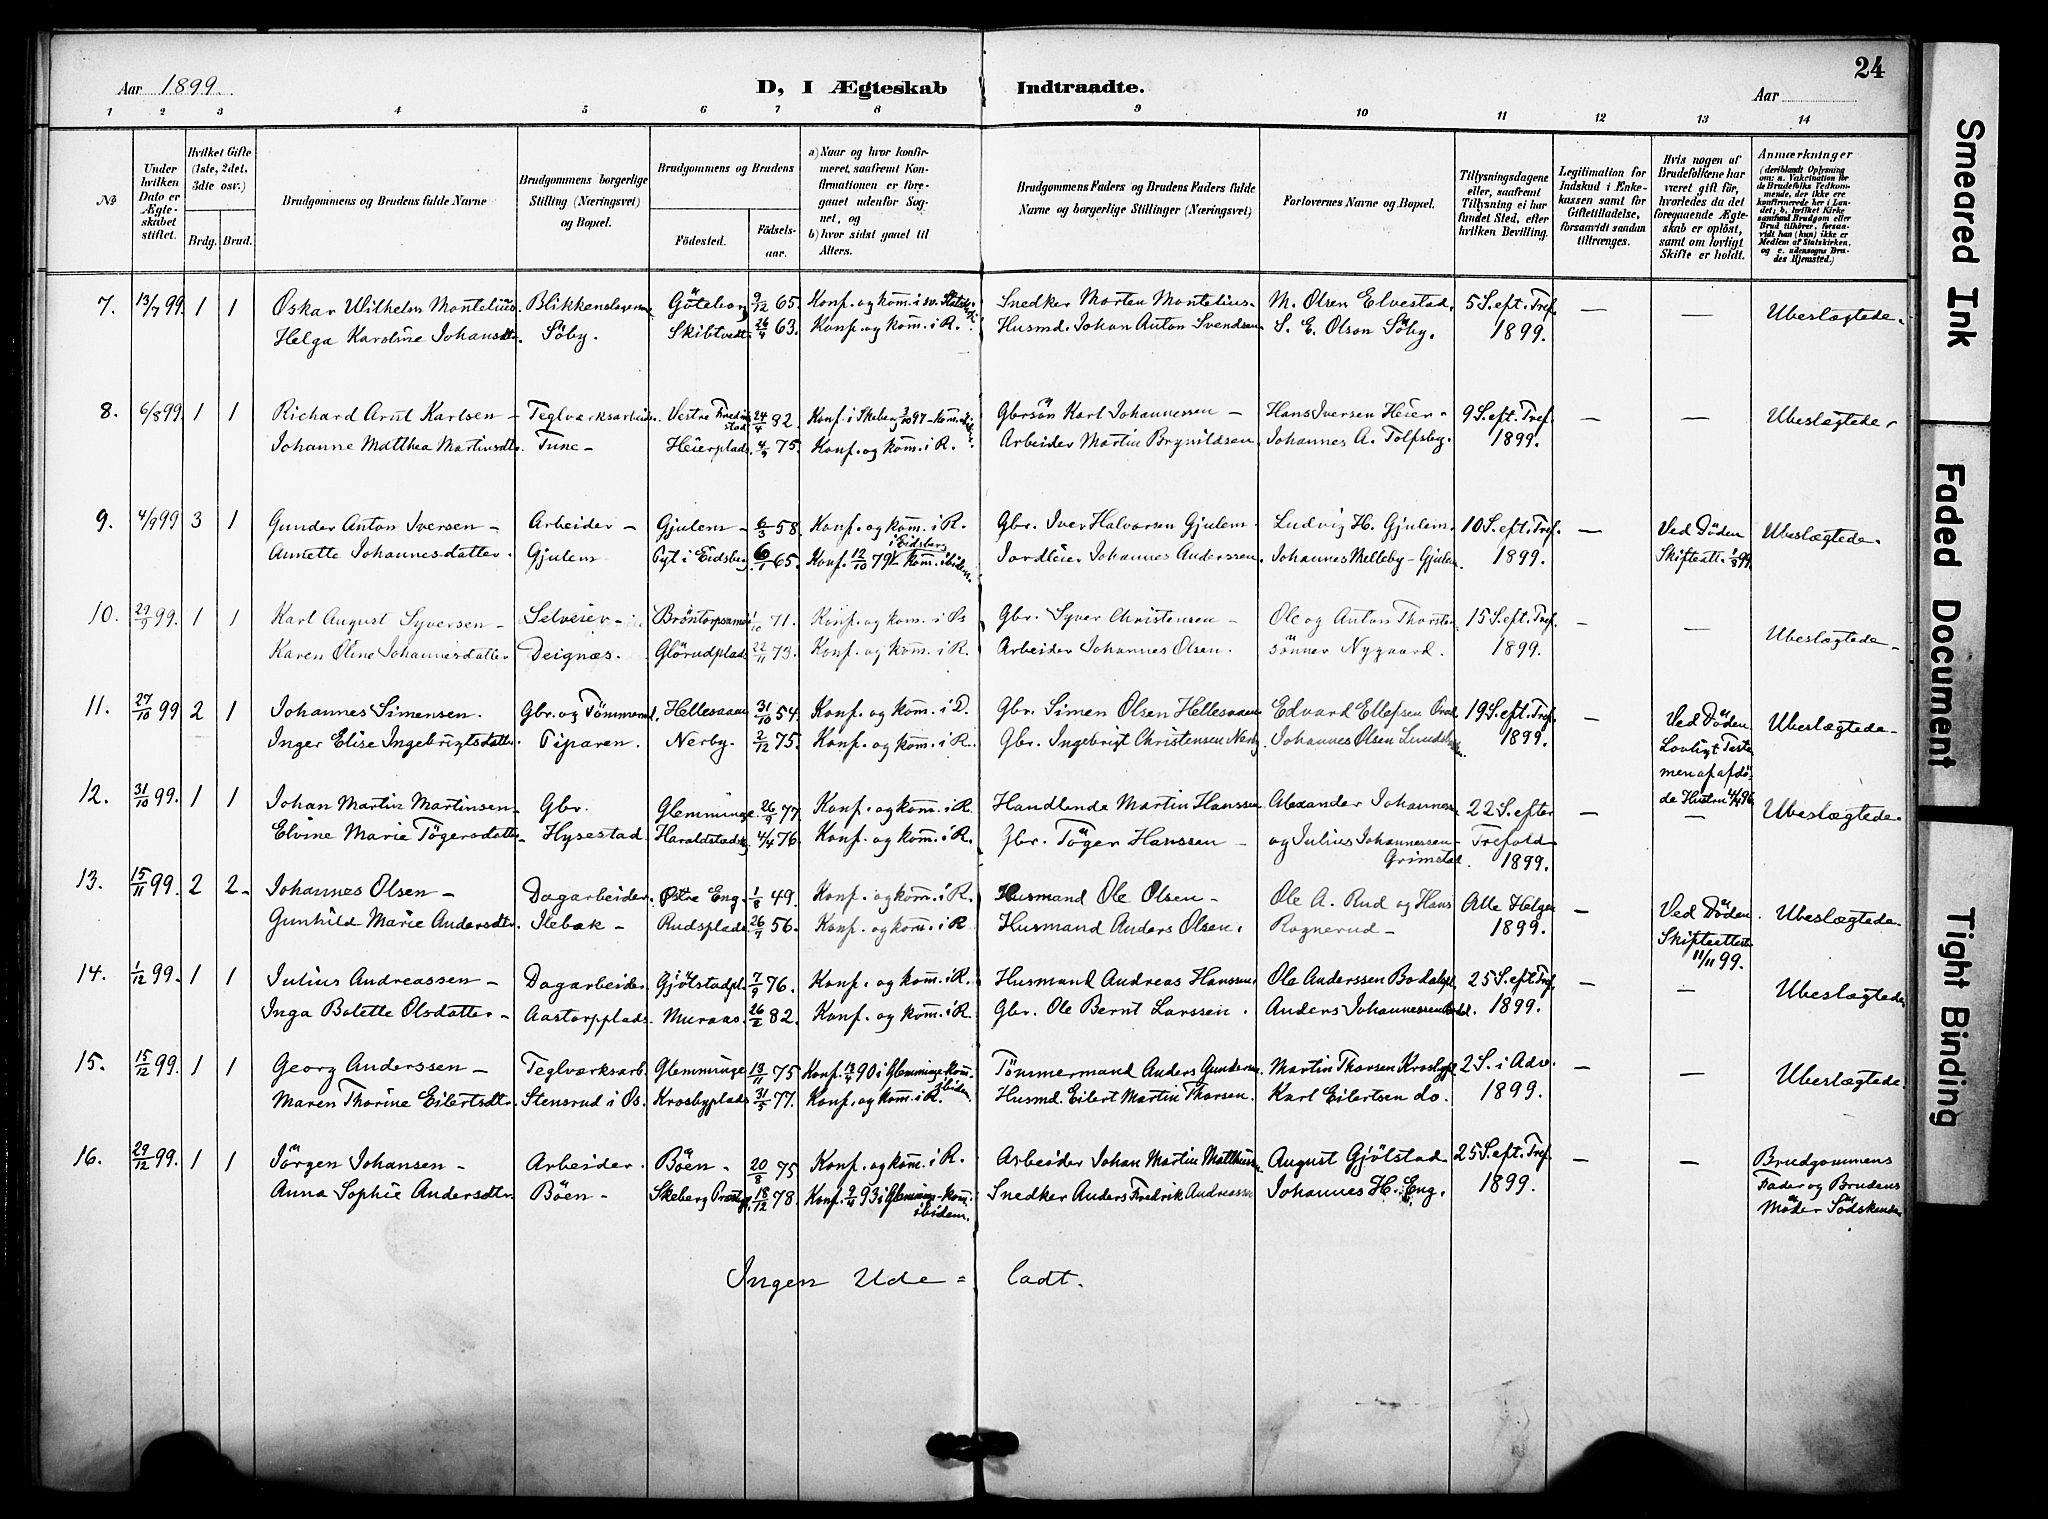 24
Aar 1899. D, I Ægteskab Indtraadte. Aar
1 2 3 4 5 6 7 8 9 10 11 12 13 14
No
Under hvilken Dato er Ægteskabet stiftet.
Hvilket Gifte (1ste, 2det, 3die osv.)
Brdg. Brud.
Brudgommens og Brudens fulde Navne
Brudgommens borgerlige Stilling (Næringsvei) og Bopæl.
Brudgommens og Brudens
Fødested. Fødselsaar.
a) Naar og hvor konfirmeret, saafremt Konfirmationen er foregaaet udenfor Sognet, og
b) hvor sidst gaaet til Alters.
Brudgommens Faders og Brudens Faders fulde Navne og borgerlige Stillinger (Næringsvei)
Forlovernes Navne og Bopæl.
Tillysningsdagene eller, saafremt Tillysning ei har fundet Sted, efter hvilken Bevilling.
Legitimation for Indskud i Enkekassen samt for Giftetilladelse, forsaavidt saadan tiltrænges.
Hvis nogen af Brudefolkene har været gift før, hvorledes da det foregaaende Ægteskab er opløst, samt om lovligt Skifte er holdt.
Anmærkninger (deriblandt Oplysning om: a. Vakcination for de Brudefolks Vedkommende, der ikke ere konfirmerede her i Landet; b. hvilket Kirkesamfund Brudgom eller Brud tilhører, forsaavidt han (hun) ikke er Medlem af Statskirken, og c. udensogns Brudes Hjemsted.)
7. 13/7 99. 1 1 Oskar Wilhelm Montelius Blikkenslager Göteborg 9/12 65. Konf. og kom. i sv. Snedker Morten Montelius M. Olsen Elvestad. 5 S. eft. Tref. — — Ubeslægtede.
Helga Karoline Johansdtr. Söby. Skibtvedt. 26/4 63. Konf. og kom. i R. Husmd. Johan Anton Svendsen S. E. Olson Söby. 1899.
8. 6/8 99. 1 1 Richard Arnt Karlsen — Teglværksarbeider. Vestre Fredrikstad 24/4 82. Konf. i Skeberg 3/10 97 Gbrsön Karl Johannessen — Hans Iversen Heier — 9 S. eft. Tref. — — Ubeslægtede.
Johanne Matthea Martinsdtr. Tune — Heierplads. 4/9 75. Konf. og kom. i R. Arbeider Martin Brynildsen. Johannes A. Tolfsby. 1899.
9. 4/9 99 3 1 Gunder Anton Iversen — Arbeider — Gjulem — 6/3 58. Konf. og kom. i R. Gbr. Iver Halvorsen Gjulem. Ludvig H. Gjulem. 10 S. eft. Tref. — Ved Döden Ubeslægtede.
Annette Johannesdatter. Gjulem Pyt i Eidsberg 6/1 65. Konf. 12/10 79 i Eidsberg kom. ibidem. Jordleier Johannes Anderssen. Johannes Melleby — Gjulem 1899. Skifteatt. 1/9 99.
10. 29/9 99. 1 1 Karl August Syversen — Selveier — Bröntorpsameie 1/10 71. Konf. og kom. i Os Gbr. Syver Christensen — Ole og Anton Thorsten 15 S. eft. Tref. — — Ubeslægtede —
Karen Oline Johannesdatter Deignæs. Glörudplads 22/11 73. Konf. og kom. i R. Arbeider Johannes Olsen. sönner Nygaard. 1899.
11. 27/10 99 2 1 Johannes Simensen. Gbr. og Tömmermd. Hellesaaen 31/10 54. Konf. og kom. i D. Gbr. Simen Olsen Hellesaaen Edvard Ellefsen 19 S. eft. Tref. — Ved Döden Ubeslægtede.
Inger Elise Ingebrigtsdatter. Tiparen. Nerby. 2/12 75. Konf. og kom. i R. Gbr. Ingebrigt Christensen Nerby. Johannes Olsen 1899. Lovligt Testamen af afdöde Hustru 4/4 96.
12. 31/10 99. 1 1 Johan Martin Martinsen — Gbr. Glemminge 26/9 77. Konf. og kom. i R. Handlende Martin Hanssen Alexander Johannessen 22 S. efter — — Ubeslægtede.
Elvine Marie Tögersdatter Hysestad Haraldstad 4/4 76. Konf. og kom. i R. Gbr. Töger Hanssen — og Julius Johannessen Grimstad Trefold. 1899.
13. 15/11 99. 2 2 — Johannes Olsen — Dagarbeider. Østre Eng. 1/8 49. Konf. og kom. i R. Husmand Ole Olsen — Ole A. Rud og Hans Alle Helgen — Ved Döden. Ubeslægtede.
Gunhild Marie Andersdtr. Ilebæk — Rudsplads 26/7 56. Konf. og kom. i R Husmand Anders Olsen. Rognerud — 1899. Skifteattest 11/11 99.
14. 1/12 99. 1 1 Julius Andreassen — Dagarbeider. Gjölstadpl. 7/9 76. Konf. og kom. i R. Husmand Andreas Hanssen. Ole Anderssen Bodalspl. 25 S. eft. Tref. — — Ubeslægtede
Inga Bolette Olsdatter — Aastorpplads. Muraas. 26/2 82. Konf. og kom. i R. Gbr. Ole Bernt Larssen. Anders Johannessen 1899.
15. 15/12 99. 1 1 Georg Anderssen — Teglværksarb. Glemminge 13/11 75 Konf. 13/4 90 i Glemminge kom. ibidem Tömmermand Anders Gundersen. Martin Thorsen Krosbypl. 2 S. i Adv. — — Ubeslægtede.
Maren Thorine Eilertsdtr. Stensrud i Os. Krosbyplads 31/5 77. Konf. og kom. i R. Husmd. Eilert Martin Thorsen. Karl Eilertsen do. 1899.
16. 29/12 99. 1 1 Jörgen Johansen — Arbeider. Böen — 20/8 75 Konf. og kom. i R. Arbeider Johan Martin August Gjölstad 25 S. eft. Tref. — — Brudgommens
Anna Sophie Andersdtr. Böen — Skeberg 18/12 78. Konf. 9/4 93 i Glemminge — kom. ibidem. Snedker Anders Fredrik Andreassen Johannes H. Eng. 1899. Fader og Brudens Moder Södskende
Ingen Ude = ladt.
Smeared Ink
Faded Document
Tight Binding